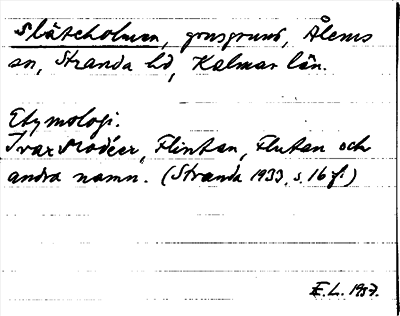 Släteholmen, grusgrund, Ålems
sn, Stranda hd, Kalmar län.
Etymologi.
Ivar Modéer, Flintan, Flutan och
andra namn. (Stranda 1933, s. 16 f.)
E. L. 1957.